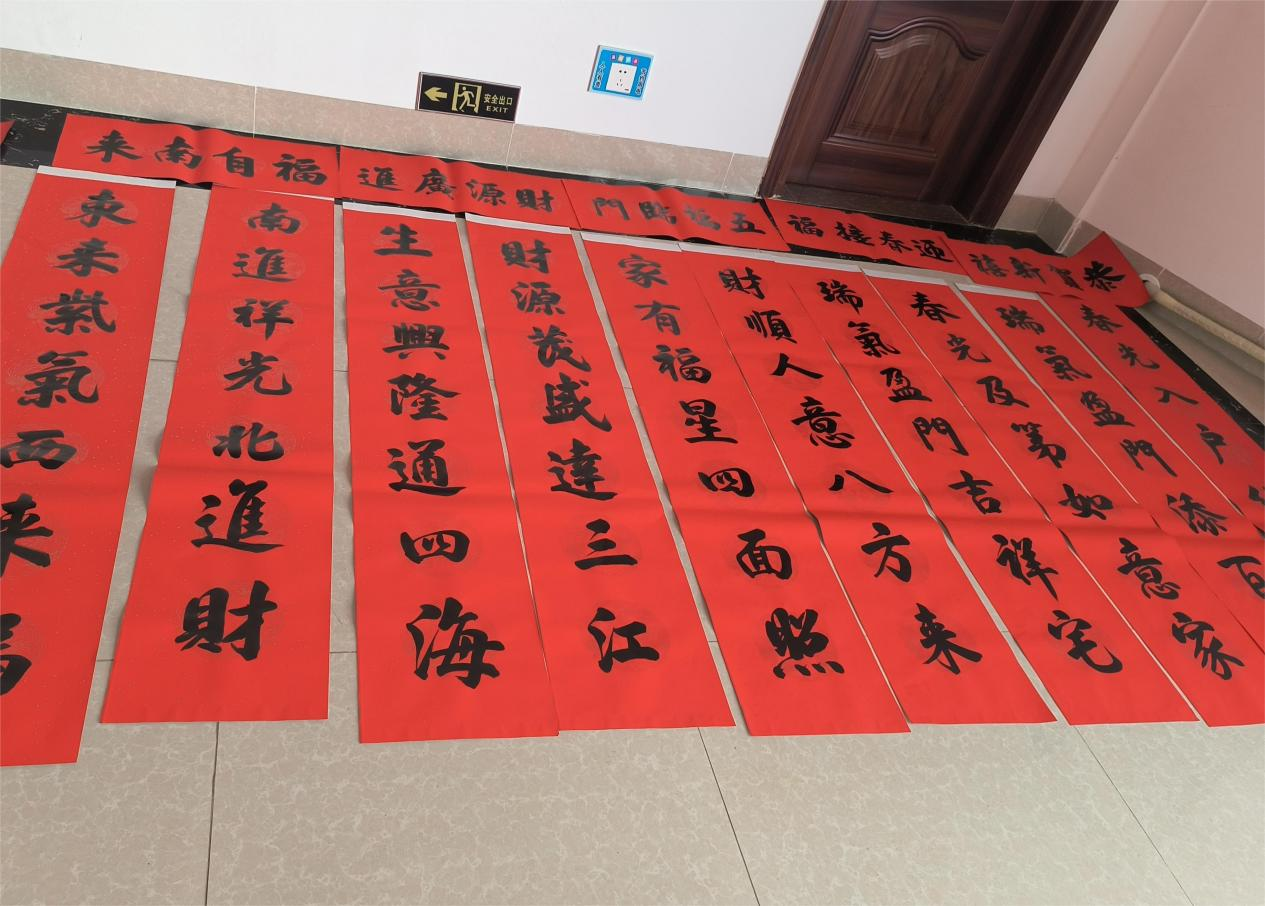 安全出口
EXIT
福自南来
財源廣進
五福臨門
迎春接福
恭賀新禧
東来紫氣西来福
南進祥光北進財
生意興隆通四海
財源茂盛達三江
家有福星四面照
財順人意八方来
瑞氣盈門吉祥宅
春光及第如意家
瑞氣盈門添百
春光入户